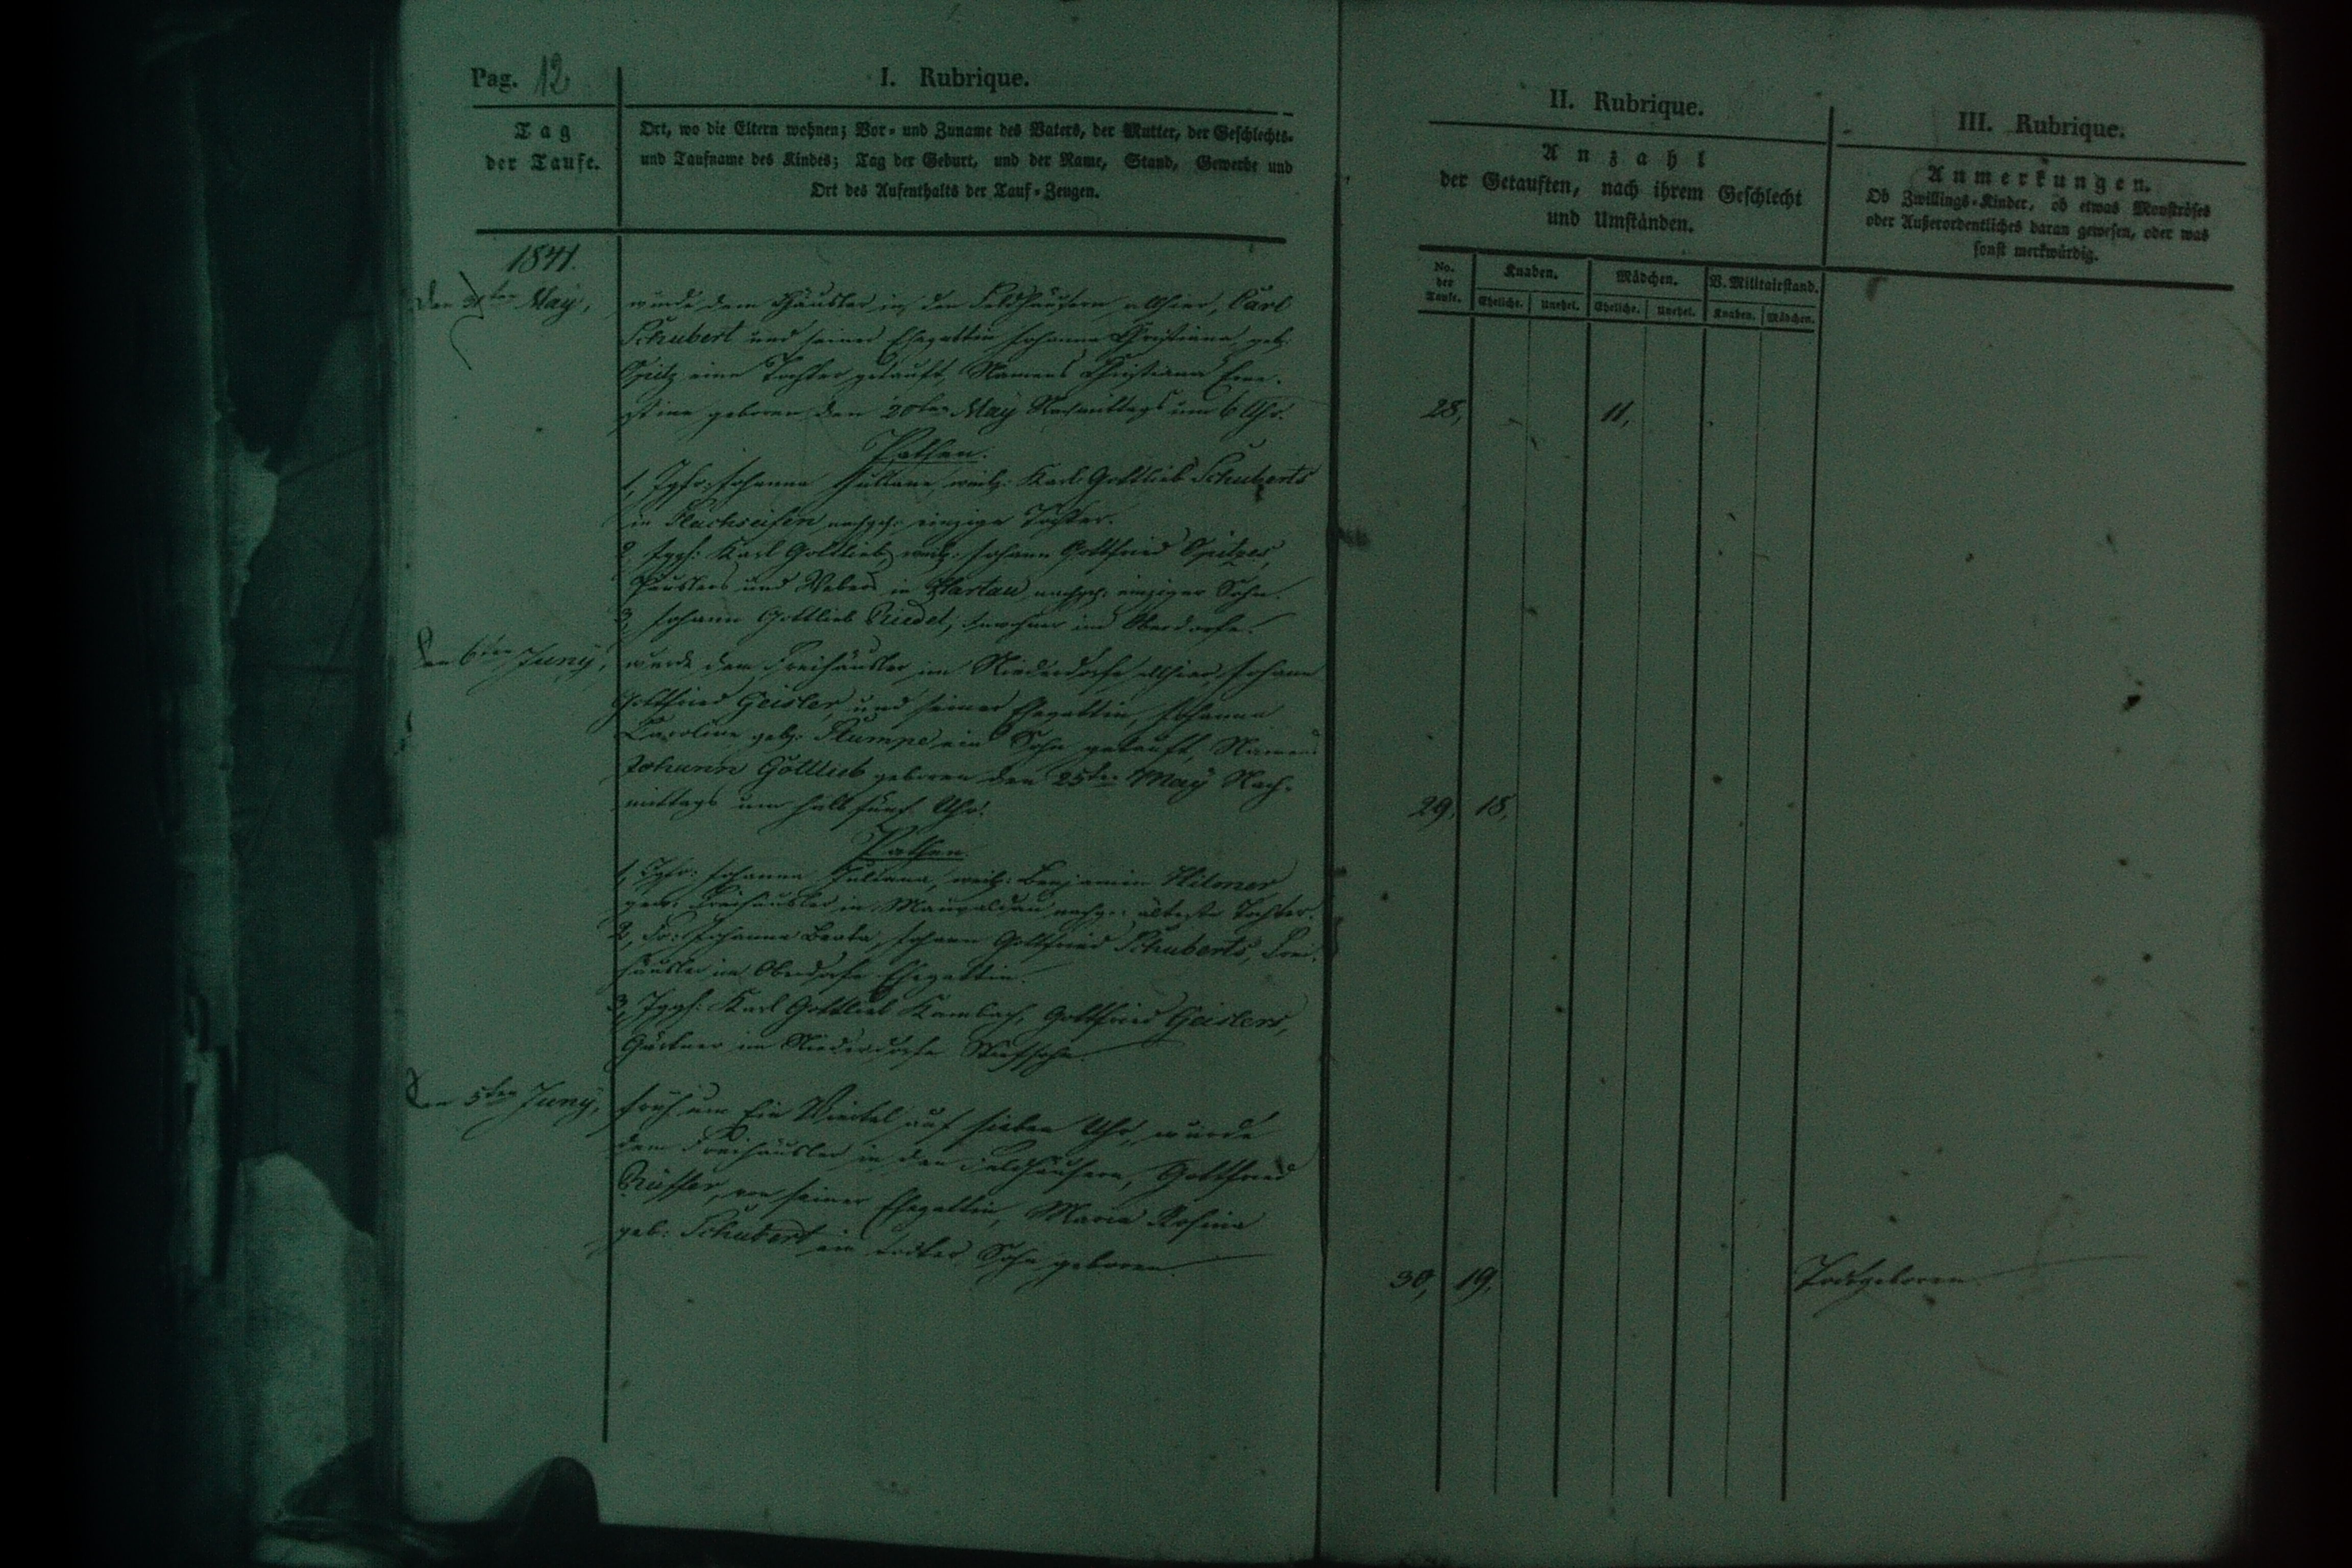 Pag. 12
I. Rubrique.
Tag
der Taufe.
Ort, wo die Eltern wohnen; Vor- und Zuname des Vaters, der Mutter, der Geschlechts-
und Taufname des Kindes; Tag der Geburt, und der Name, Stand, Gewerbe und
Ort des Aufenthalts der Tauf-Zeugen.
1841.
den May, wurde dem Häusler in den Feldhäusern allhier, Carl
Schubert und seiner Ehegattin Johanna Christiana, geb.
Opitz eine Tochter getauft, Namens Christiana Erne-
stine geboren den 20ten May Nachmittags um 6 Uhr.
Pathen.
1, Igfr: Johanna Juliane, weil: Karl Gottlieb Schuberts
in Flachseifen nachgel: einzige Tochter.
2, Iggs: Karl Gottlieb, weil: Johann Gottfried Opitzes,
Häuslers und Webers in Hartau nachgel: einziger Sohn.
3, Johann Gottlieb Riedel, Inwohner im Oberdorfe.
Den 6ten Juny, wurde dem Freihäusler im Niederdorfe allhier, Johann
Gottfried Geisler, und seiner Ehegattin, Johanna
Caroline geb: Stumpe ein Sohn getauft, Namens
Johann Gottlieb geboren den 25ten May Nach-
mittags um halb fünf Uhr.
Pathen.
1, Igfr: Johanna Juliana, weil: Benjamin Hilmer
gew: Freihäusler in Maywaldau nachge: älteste Tochter.
2, Fr: Johanna Beata, Johann Gottfried Schuberts, Frei-
häusler im Oberdorfe Ehegattin.
3, Iggs: Karl Gottlieb Kambach, Gottfried Geislers,
Gärtner im Niederdorfe Stiefsohn.
Den 5ten Juny, früh um Ein Viertel auf sieben Uhr, wurde
dem Freihäusler in den Feldhäusern, Gottfried
Rüffer, von seiner Ehegattin, Maria Rosina
geb: Schubert ein todter Sohn geboren.
II. Rubrique.
Anzahl
der Getauften, nach ihrem Geschlecht
und Umständen.
No.
der
Taufe.
Knaben. Mädchen. V. Militairstand.
Eheliche. Unehel. Eheliche. Unehel. Knaben. Mädchen.
28, 11,
29, 18,
30, 19,
III. Rubrique.
Anmerkungen.
Ob Zwillings-Kinder, ob etwas Monströses
oder Außerordentliches daran gewesen, oder was
sonst merkwürdig.
Todtgeboren